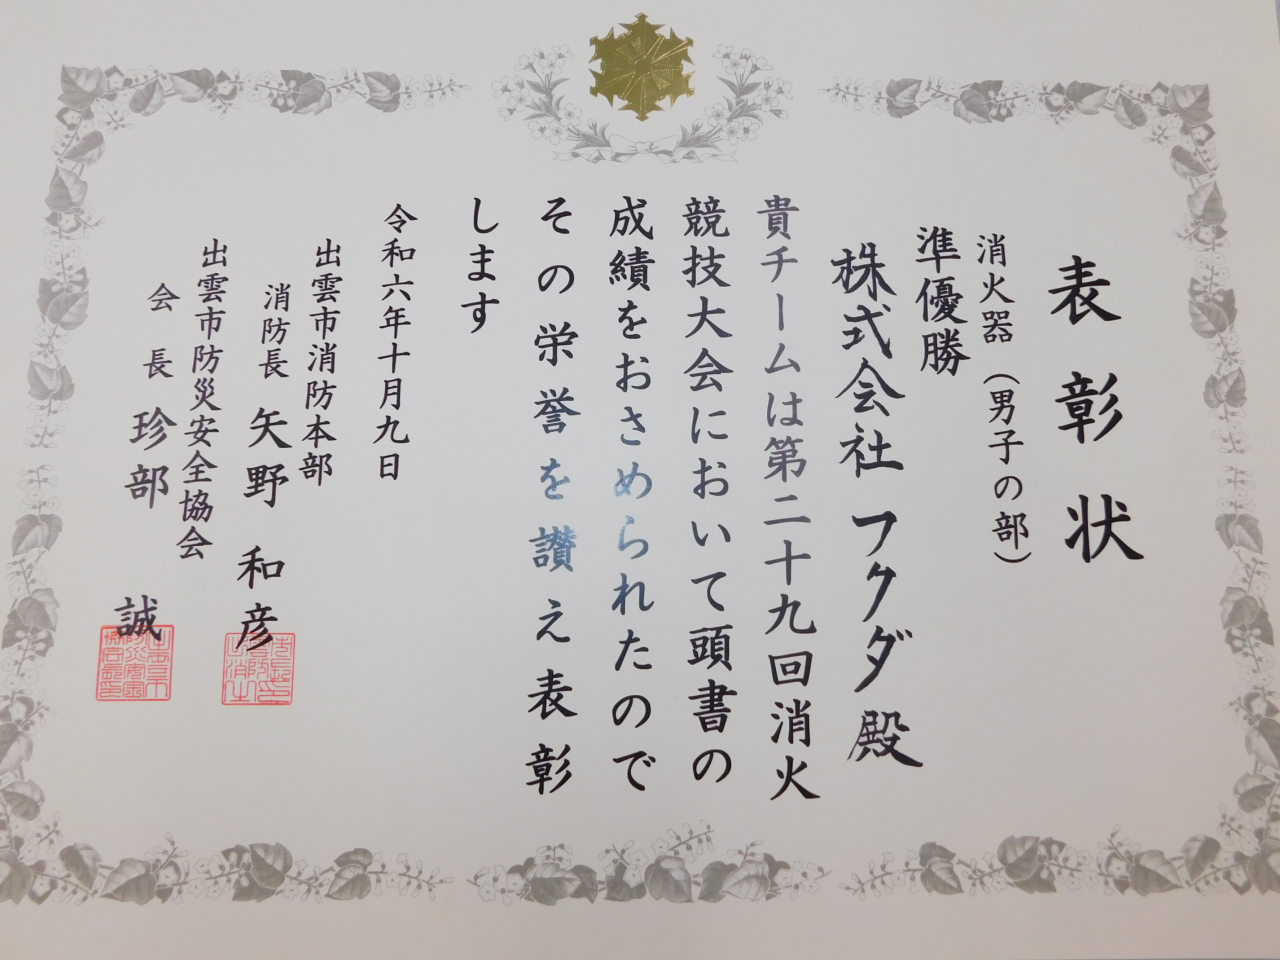 表彰状
消火器（男子の部）
準優勝
株式会社フクダ殿
貴チームは第二十九回消火
競技大会において頭書の
成績をおさめられたので
その栄誉を讃え表彰
します
令和六年十月九日
出雲市消防本部
消防長 矢野 和彦
出雲市防災安全協会
会長 珍部 誠